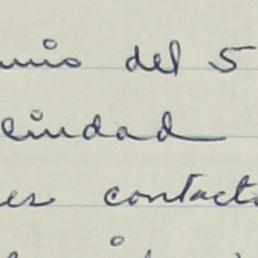 unio del 5
ciudad
es contact